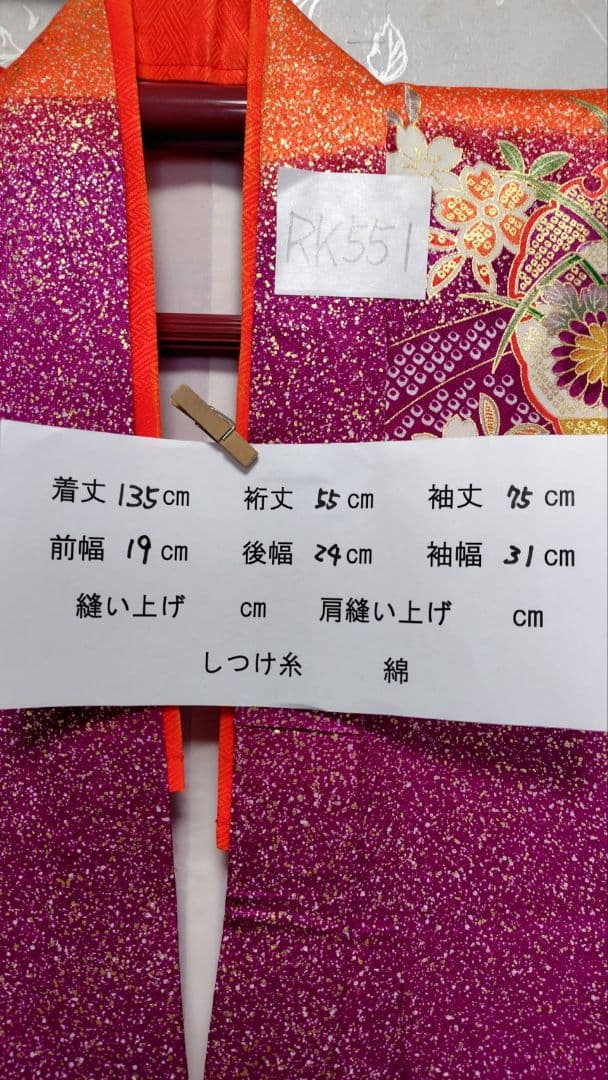 RK551
着丈 135cm 裄丈 55cm 袖丈 75cm
前幅 19cm 後幅 24cm 袖幅 31cm
縫い上げ cm 肩縫い上げ cm
しつけ糸 綿